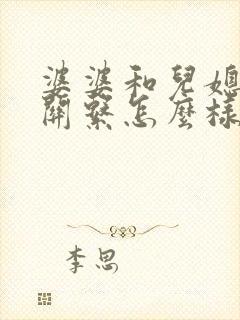 婆婆和兒媳
關繫怎麼樣
李思